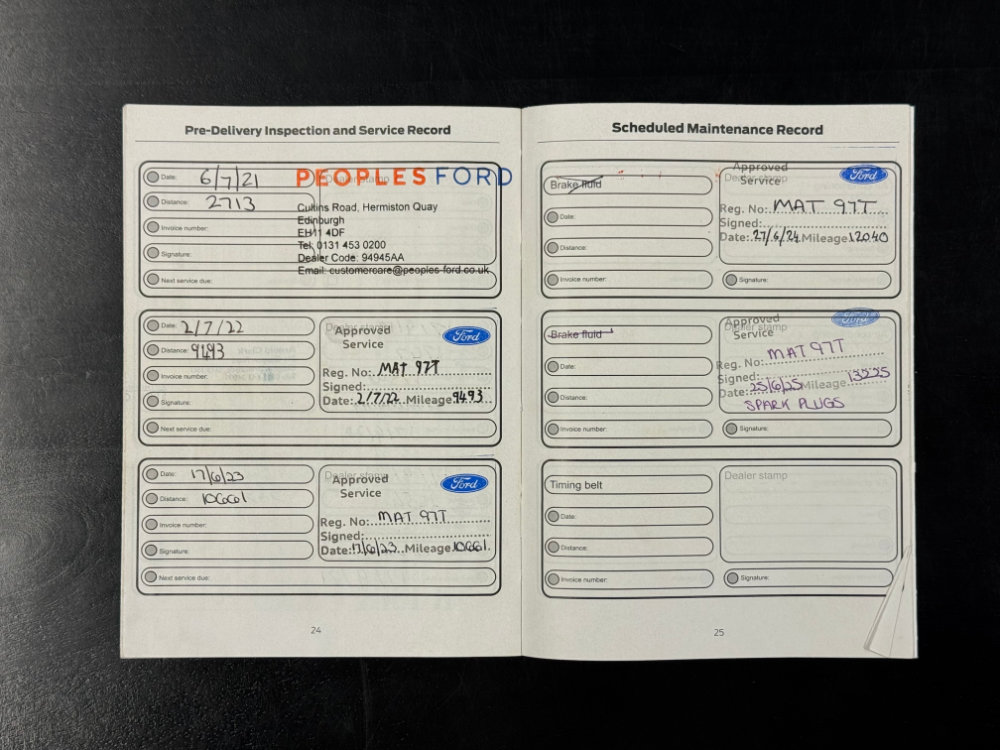 Pre-Delivery Inspection and Service Record
Date: 6/7/21
Distance: 2713
Invoice number:
Signature:
Next service due:
Dealer stamp
PEOPLES FORD
Cultins Road, Hermiston Quay
Edinburgh
EH11 4DF
Tel: 0131 453 0200
Dealer Code: 94945AA
Email: customercare@peoples-ford.co.uk
Date: 2/7/22
Distance: 9493
Invoice number:
Signature:
Next service due:
Dealer stamp
Approved
Service
Ford
Reg. No: MAT 97T
Signed:
Date: 2/7/22 Mileage 9493
Date: 17/6/23
Distance: 10661
Invoice number:
Signature:
Next service due:
Dealer stamp
Approved
Service
Ford
Reg. No: MAT 97T
Signed:
Date: 17/6/23 Mileage 10661
24
Scheduled Maintenance Record
Brake fluid
Date:
Distance:
Invoice number:
Dealer stamp
Approved
Service
Ford
Reg. No: MAT 97T
Signed:
Date: 27/6/24 Mileage 12040
Signature:
Brake fluid
Date:
Distance:
Invoice number:
Dealer stamp
Approved
Service
Ford
Reg. No: MAT 97T
Signed:
Date: 25/6/25 Mileage 13225
SPARK PLUGS
Signature:
Timing belt
Date:
Distance:
Invoice number:
Dealer stamp
Signature:
25